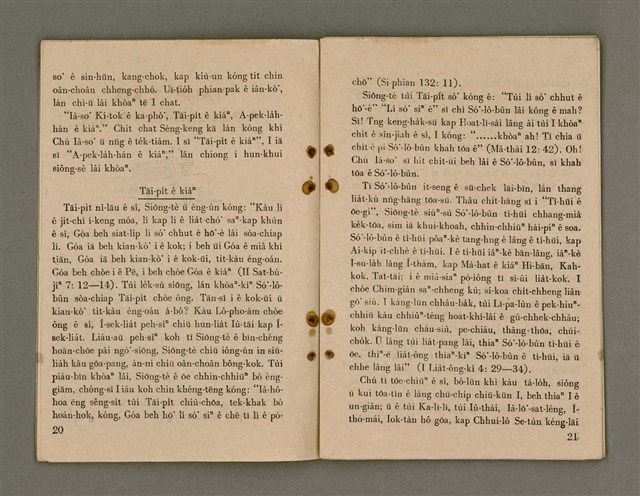 so͘ ê sin-hūn, kang-chok, kap kiù-un kóng tit chin
oân-choân chheng-chhó. Ui-tio̍h phian-pak ê iân-kò͘,
lán chí-ū lâi khòaⁿ tē 1 chat.
“Iâ-so͘ Ki-tok ê ka-phó͘, Tāi-pit ê kiáⁿ, A-pek-la̍h-
hán ê kiáⁿ.” Chit chat Sèng-keng kā lán kóng khí
Chú Iâ-so͘ ū nn̄g ê te̍k-tiám. I sī “Tāi-pit ê kiáⁿ”, I iā
sī “A-pek-la̍h-hán ê kiáⁿ,” lán chiong i hun-khui
siông-sè lâi khòaⁿ.
Tāi-pit ê kiáⁿ
Tāi-pit nî-lāu ê sî, Siōng-tè ū èng-ún kóng: “Kàu lí
ê ji̍t-chí í-keng móa, lí kap lí ê lia̍t-chó͘ saⁿ-kap khùn
ê sî, Góa beh siat-li̍p lí só͘ chhut ê hō͘-è lâi sòa-chiap
lí. Góa iā beh kian-kò͘ i ê kok; i beh ūi Góa ê miâ khí
tiān, Góa iā beh kian-kò͘ i ê kok-ūi, ti̍t-kàu éng-oán.
Góa beh chòe i ê Pē, i beh chòe Góa ê kiáⁿ (II Sat-bú-
jíⁿ 7: 12—14). Tùi le̍k-sú siōng, lán khòaⁿ-kìⁿ Só͘-lô-
bûn sòa-chiap Tāi-pit chòe ông. Tān-sī i ê kok-ūi ū
kian-kò͘ ti̍t-kàu éng-oán á-bô? Kàu Lô-pho-àm chòe
ông ê sî, Í-sek-lia̍t peh-sìⁿ chiū hun-lia̍t Iû-tāi kap Í-
sek-lia̍t. Liáu-āu peh-sìⁿ koh tī Siōng-tè ê bīn-chêng
hoān-chōe pài ngó͘-siōng, Siōng-tè chiū iông-ún in siū-
lia̍h kàu gōa-pang, àn-ni chiū oân-choân bông-kok. Tùi
piáu-bīn khòaⁿ lâi, Siōng-tè ê ōe chhin-chhiūⁿ bô èng-
giām, chóng-sī I iáu koh chin khéng-tēng kóng: “Iâ-hô-
hoa ēng sêng-si̍t tùi Tāi-pit chiù-chōa, tek-khak bô
hoán-hok, kóng, Góa beh hō͘ lí só͘ siⁿ ê chē tī lí ê pó-
20
chō” (Si-phian 132: 11).
Siōng-tè tùi Tāi-pit só͘ kóng ê: “Tùi lí só͘ chhut ê
hō͘-è” “Lí só͘ siⁿ ê” sī chí Só͘-lô-bûn lâi kóng ê mah?
Sī! Tng keng-ha̍k-sū kap Hoat-lī-sài lâng ài tùi I khòaⁿ
chi̍t ê sîn-jiah ê sî, I kóng: “......khòaⁿ ah! Tī chia ū
chi̍t ê pí Só͘-lô-bûn khah tōa ê” (Má-thài 12: 42). Oh!
Chú Iâ-so͘ sī hit chi̍t-ūi beh lâi ê Só͘-lô-bûn, sī khah
tōa ê Só͘-lô-bûn.
Tī Só͘-lô-bûn it-seng ê sū-chek lāi-bīn, lán thang
lia̍t-kú nn̄g-hāng tōa-sū. Thâu chi̍t-hāng sī i “Tì-hūi ê
ōe-gí”. Siōng-tè siúⁿ-sù Só͘-lô-bûn tì-hūi chhang-miâ
ke̍k-tōa, sim iā khui-khoah, chhin-chhiūⁿ hái-piⁿ ê soa.
Só͘-lô-bûn ê tì-hūi pôaⁿ-kè tang-hng ê lâng ê tì-hūi, kap
Ai-ki̍p it-chhè ê tì-hūi. I ê tì-hūi iâⁿ-kè bān-lâng, iâⁿ-kè
I-su-la̍h lâng Í-thàm, kap Má-hat ê kiáⁿ Hi-bān, Kah-
kok. Tat-tāi; i ê miâ-siaⁿ pò-iông tī sì-ûi lia̍t-kok. I
chòe Chim-giân saⁿ-chheng kù; si-koa chi̍t-chheng lēng
gō͘ siú. I káng-lūn chhâu-ba̍k, tùi Lī-pa-lùn ê pek-hiuⁿ-
chhiū kàu chhiûⁿ-téng hoat-khí-lâi ê gû-chhek-chháu;
koh káng-lūn cháu-siù, pe-chiáu, thâng-thōa, chúi-
cho̍k. Ū lâng tùi lia̍t-pang lâi, thiaⁿ Só͘-lô-bûn ê tì-hūi ê
ōe, thiⁿ-ē lia̍t-ông thiaⁿ-kìⁿ Só͘-lô-bûn ê tì-hūi, iā ū
chhe lâng lâi” (I Lia̍t-ông-kì 4: 29—34).
Chú tī tōe-chiūⁿ ê sî, bô-lūn khì kàu tá-lo̍h, siông
ū kui tōa-tīn ê lâng chū-chi̍p chiū-kūn I, beh thiaⁿ I ê
un-giân; ū ê tùi Ka-lī-lī, tùi Iú-thài, Iâ-lō͘-sat-léng, Í-
thó-mái, Iok-tàn hô gōa, kap Chhui-lô Se-tùn kéng-lāi
21